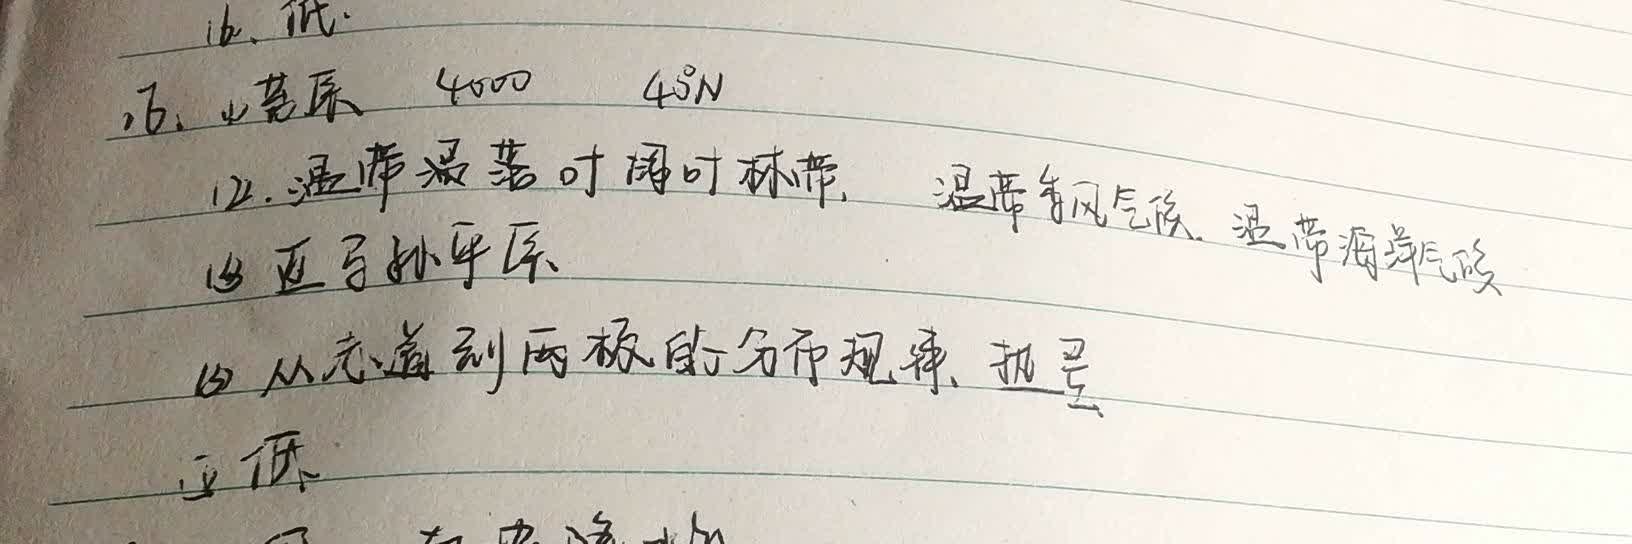 16、低.
16、(1)草原 4000 40°N
(2).温带温落叶阔叶林带. 温带季风气候. 温带海洋气候
(3)亚马孙平原
(5)从赤道到两极的分布规律、热量
(1)低